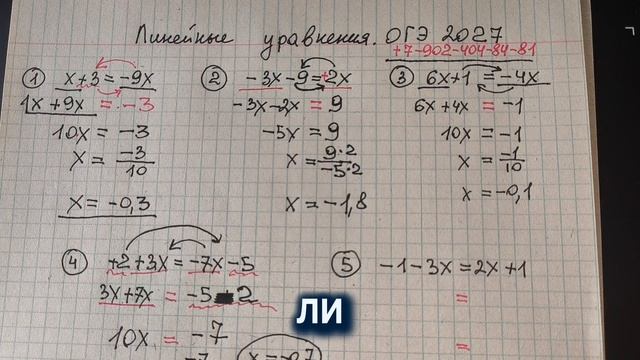 Линейные уравнения. ОГЭ 2027
+7-902-404-84-81
① x+3=-9x
1x+9x=-3
10x=-3
x=-3/10
x=-0,3
② -3x-9=+2x
-3x-2x=9
-5x=9
x=9·2/-5·2
x=-1,8
③ 6x+1=-4x
6x+4x=-1
10x=-1
x=-1/10
x=-0,1
④ +2+3x=-7x-5
3x+7x=-5-2
10x=-7
-7
x=-0,7
⑤ -1-3x=2x+1
=
=
ЛИ